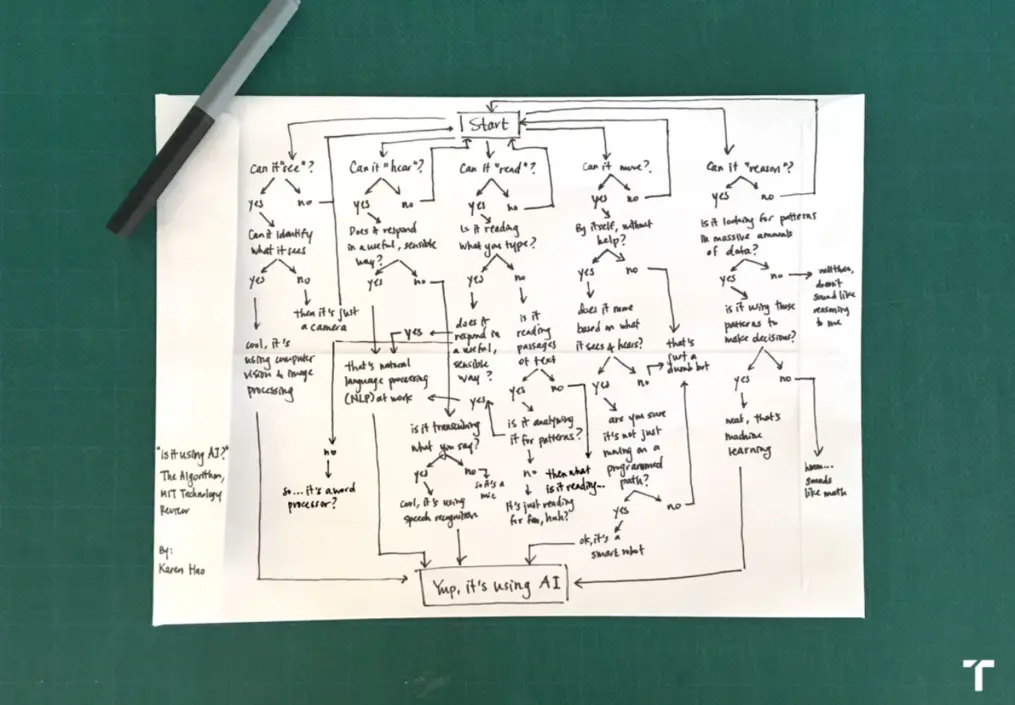 Start
Can it "see"?
yes
no
Can it identify
what it sees
yes
no
then it's just
a camera
cool, it's
using computer
vision & image
processing
Can it "hear"?
yes
no
Does it respond
in a useful, sensible
way?
yes
no
that's natural
language processing
(NLP) at work
is it transcribing
what you say?
yes
no
so it's a
mic
cool, it's using
speech recognition
Can it "read"?
yes
no
Is it reading
what you type?
yes
no
does it
respond in
a useful,
sensible
way?
yes
no
so... it's a word
processor?
is it
reading
passages
of text
yes
no
is it analyzing
it for patterns?
yes
no
then what
is it reading...
It's just reading
for fun, huh?
Can it move?
yes
no
By itself, without
help?
yes
no
does it move
based on what
it sees & hears?
yes
no
that's
just a
dumb bot
are you sure
it's not just
moving on a
programmed
path?
yes
no
ok, it's a
smart robot
Can it "reason"?
yes
no
Is it looking for patterns
in massive amounts
of data?
yes
no
neither,
doesn't
sound like
reasoning
to me
is it using those
patterns to
make decisions?
yes
no
neat, that's
machine
learning
hmm...
sounds
like math
Yup, it's using AI
"Is it using AI?"
The Algorithm,
MIT Technology
Review
By:
Karen Hao